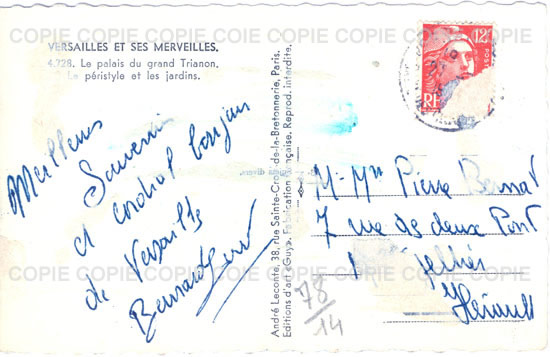 VERSAILLES ET SES MERVEILLES.
4.228. Le palais du grand Trianon.
Le péristyle et les jardins.
Meilleurs
Souvenirs
et cordial bonjour
de Versailles
André Leconte, 38, rue Sainte-Croix-de-la-Bretonnerie, Paris.
Editions d'art "Guy". Fabrication française. Reprod. interdite.
12F
POSTES
RF
M. Mme Pierre
7 rue des deux Pont
Hérault
78
14
COPIE COPIE COPIE COPIE COPIE COPIE
COPIE COPIE COPIE COPIE COPIE COPIE
COPIE COPIE COPIE COPIE COPIE COPIE